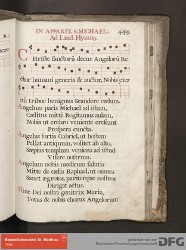 IN APPARIT. S. MICHAEL.
Ad Laud. Hymnus.
Christe sanctorū decus Angelorū Re
ctor humani generis & auctor, Nobis eter
num tribue benignus scandere cælum.
Angelus pacis Michael ad istam,
Cælitus mitti Rogitamus aulam,
Nobis ut crebro veniente crescant
Prospera cuncta.
Angelus fortis Gabriel, ut hostem
Pellat antiquum, volitet ab alto,
Sæpius templum veniens ad istud
Visere nostrum.
Angelum nobis medicum salutis
Mitte de cælis Raphael, ut omnes
Sanet ægrotos, pariterque nostros
Dirigat actus.
Hinc Dei nostri genitrix Maria,
Totus & nobis chorus Angelorum
DFG